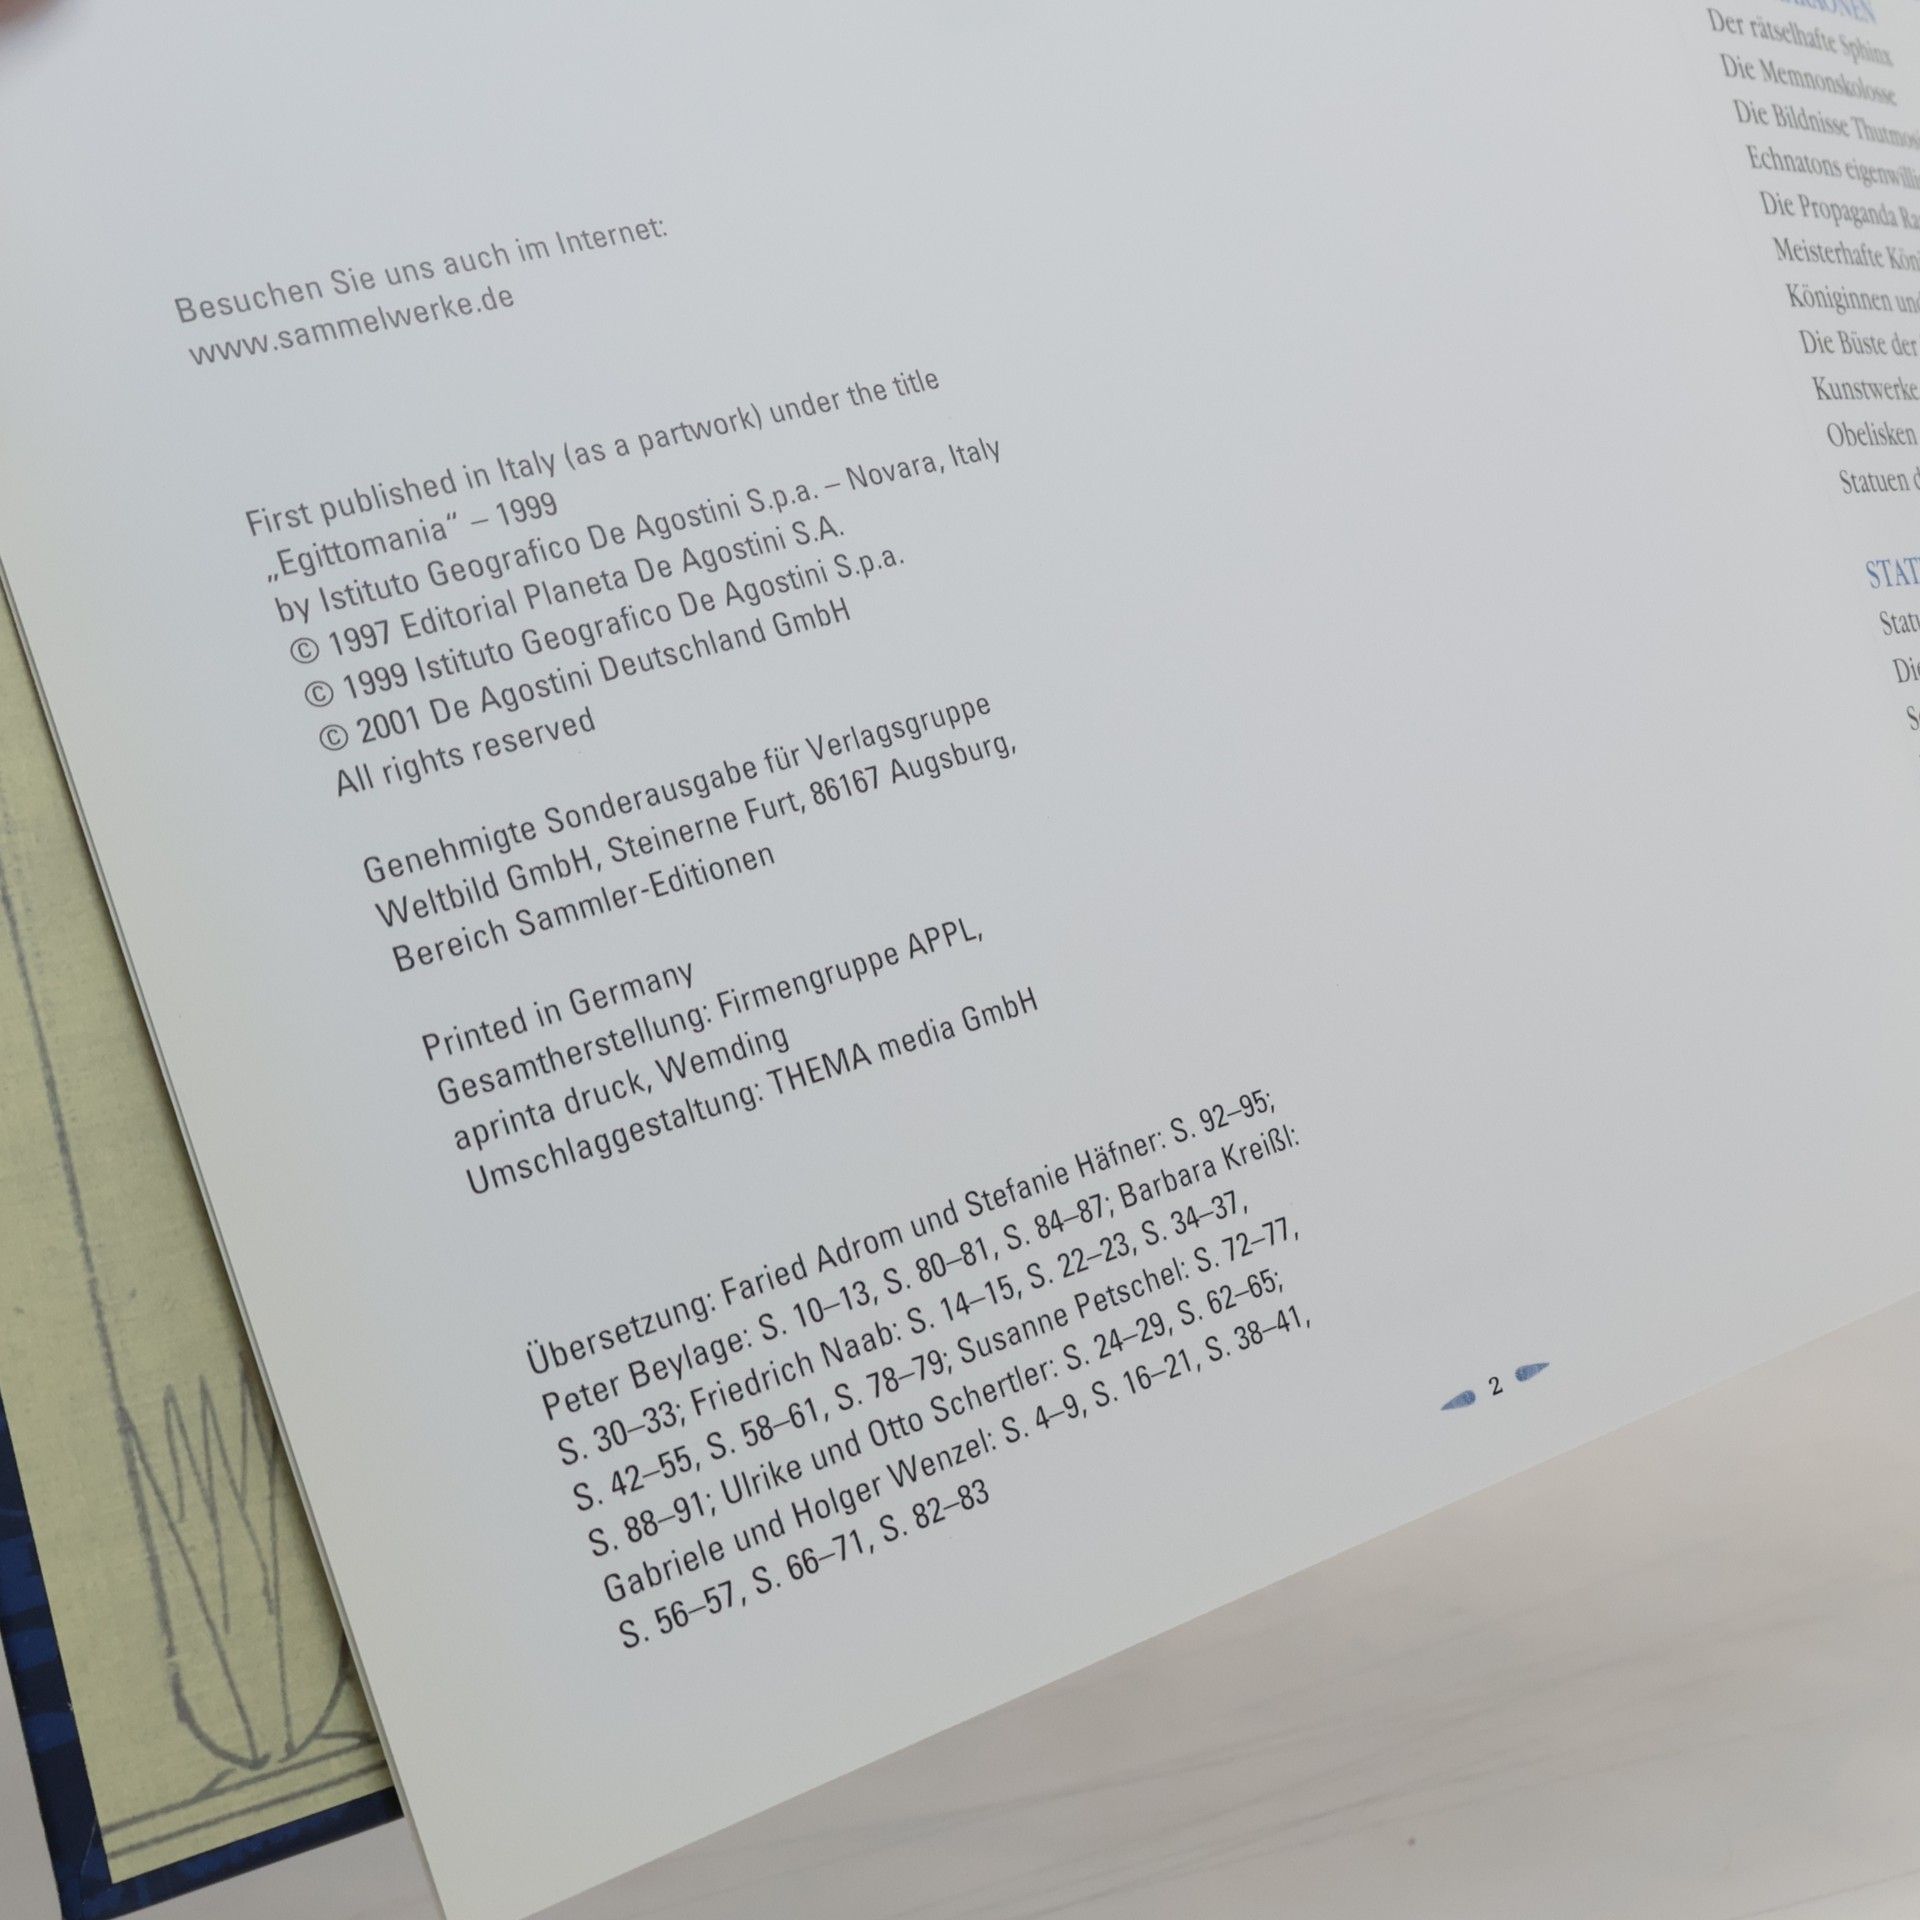 Besuchen Sie uns auch im Internet:
www.sammelwerke.de
First published in Italy (as a partwork) under the title
„Egittomania“ – 1999
by Istituto Geografico De Agostini S.p.a. – Novara, Italy
© 1997 Editorial Planeta De Agostini S.A.
© 1999 Istituto Geografico De Agostini S.p.a.
© 2001 De Agostini Deutschland GmbH
All rights reserved
Genehmigte Sonderausgabe für Verlagsgruppe
Weltbild GmbH, Steinerne Furt, 86167 Augsburg,
Bereich Sammler-Editionen
Printed in Germany
Gesamtherstellung: Firmengruppe APPL,
aprinta druck, Wemding
Umschlaggestaltung: THEMA media GmbH
Übersetzung: Faried Adrom und Stefanie Häfner: S. 92–95;
Peter Beylage: S. 10–13, S. 80–81, S. 84–87; Barbara Kreißl:
S. 30–33; Friedrich Naab: S. 14–15, S. 22–23, S. 34–37,
S. 42–55, S. 58–61, S. 78–79; Susanne Petschel: S. 72–77,
S. 88–91; Ulrike und Otto Schertler: S. 24–29, S. 62–65;
Gabriele und Holger Wenzel: S. 4–9, S. 16–21, S. 38–41,
S. 56–57, S. 66–71, S. 82–83
2
Der rätselhafte Sphinx
Die Memnonskolosse
Die Bildnisse
Echnatons
Die Propaganda
Meisterhafte
Königinnen
Die Büste der
Kunstwerke
Obelisken
Statuen